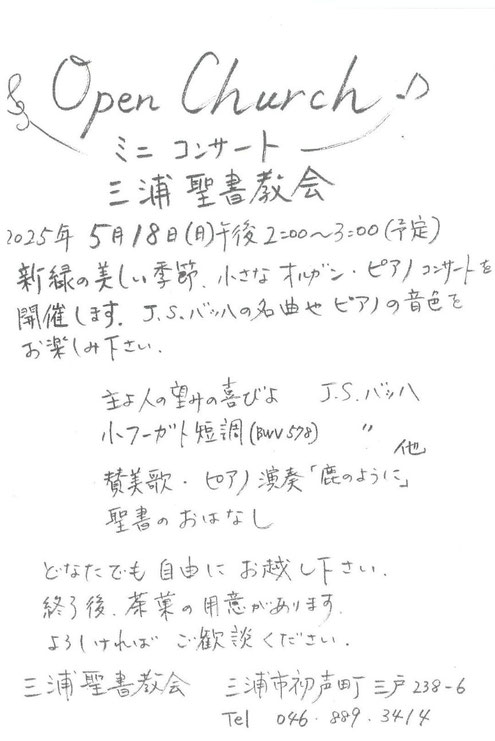 Open Church
ミニ コンサート
三浦 聖書教会
2025年 5月18日(月)午後2:00〜3:00(予定)
新緑の美しい季節、小さな オルガン・ピアノコンサートを
開催します。J.S.バッハの名曲や ピアノの音色を
お楽しみ下さい。
主よ人の望みの喜びよ J.S.バッハ
小フーガト短調(BWV578) 〃
他
賛美歌・ピアノ演奏「鹿のように」
聖書のおはなし
どなたでも 自由に お越し下さい。
終了後、茶菓の用意があります。
よろしければ ご歓談ください。
三浦聖書教会 三浦市初声町三戸238-6
Tel 046.889.3414